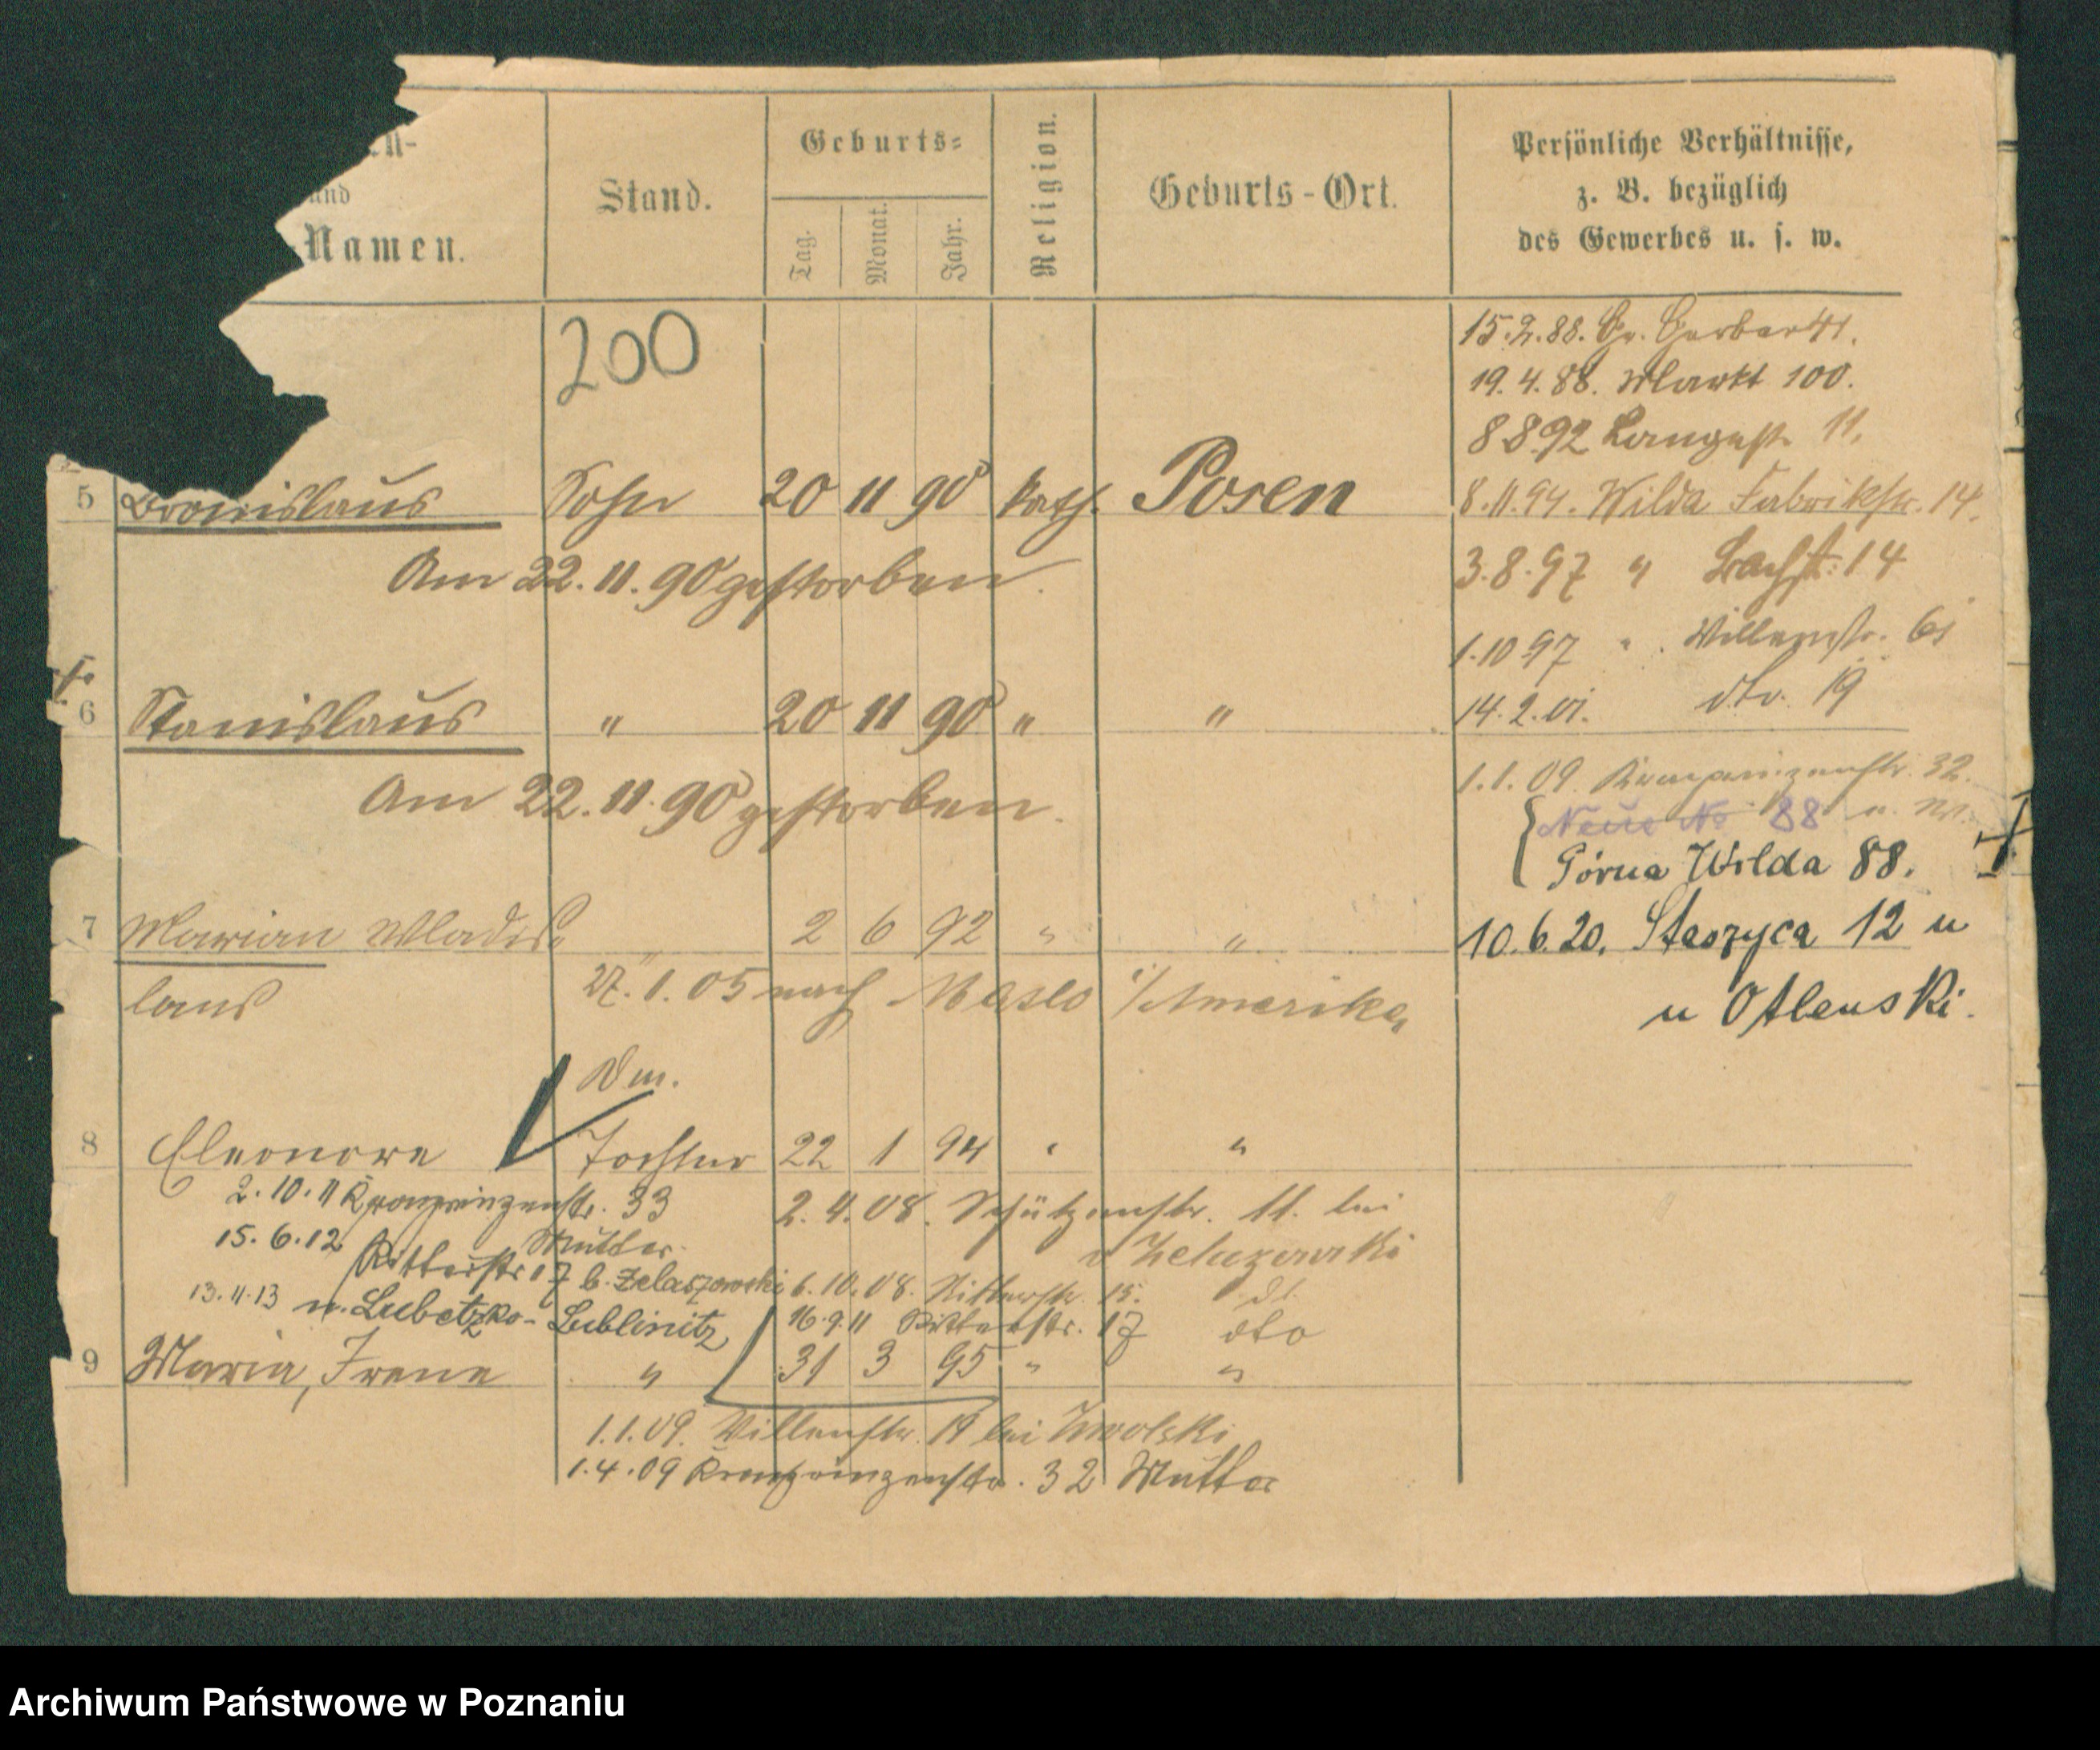 und
Namen.
Stand.
Geburts-
Tag.
Monat.
Jahr.
Religion.
Geburts-Ort.
Persönliche Verhältnisse,
z. B. bezüglich
des Gewerbes u. s. w.
200
15.2.88. Gr. Gerber 41.
19.4.88. Markt 100.
8 8 92 Langestr. 11.
5 Bronislaus Sohn 20 11 90 kath. Posen
8.11.94. Wilda Fabrikstr. 14.
Am 22.11.90 gestorben.
3.8.97 " Bachstr. 14
1.10 97 " Villenstr. 6
6 Stanislaus " 20 11 90 " "
14.2.01. dto. 19
Am 22.11.90 gestorben.
1.1.09. Kronprinzenstr. 32.
Neue No 88
Górna Wilda 88.
7 Marian Wladis- " 2 6 92 " "
laus
10.6.20. Staszyca 12 u
27.1.05 nach i/Amerika
u Otlewski.
8 Eleonore Tochter 22 1 94 " "
2.10.11 Kronprinzenstr. 33
Mutter
2.4.08. Schützenstr. 11. bei
v Zelazowski
15.6.12 Ritterstr 17 b. Zelaszowski
6.10.08. Ritterstr. 15. dt.
13.11.13 n. Lubetzko-Lublinitz
16.9.11 Ritterstr. 17 dto
9 Maria, Irene " 31 3 95 " "
1.1.09. Villenstr. 19 bei
1.4.09 Kronprinzenstr. 32 Mutter
Archiwum Państwowe w Poznaniu